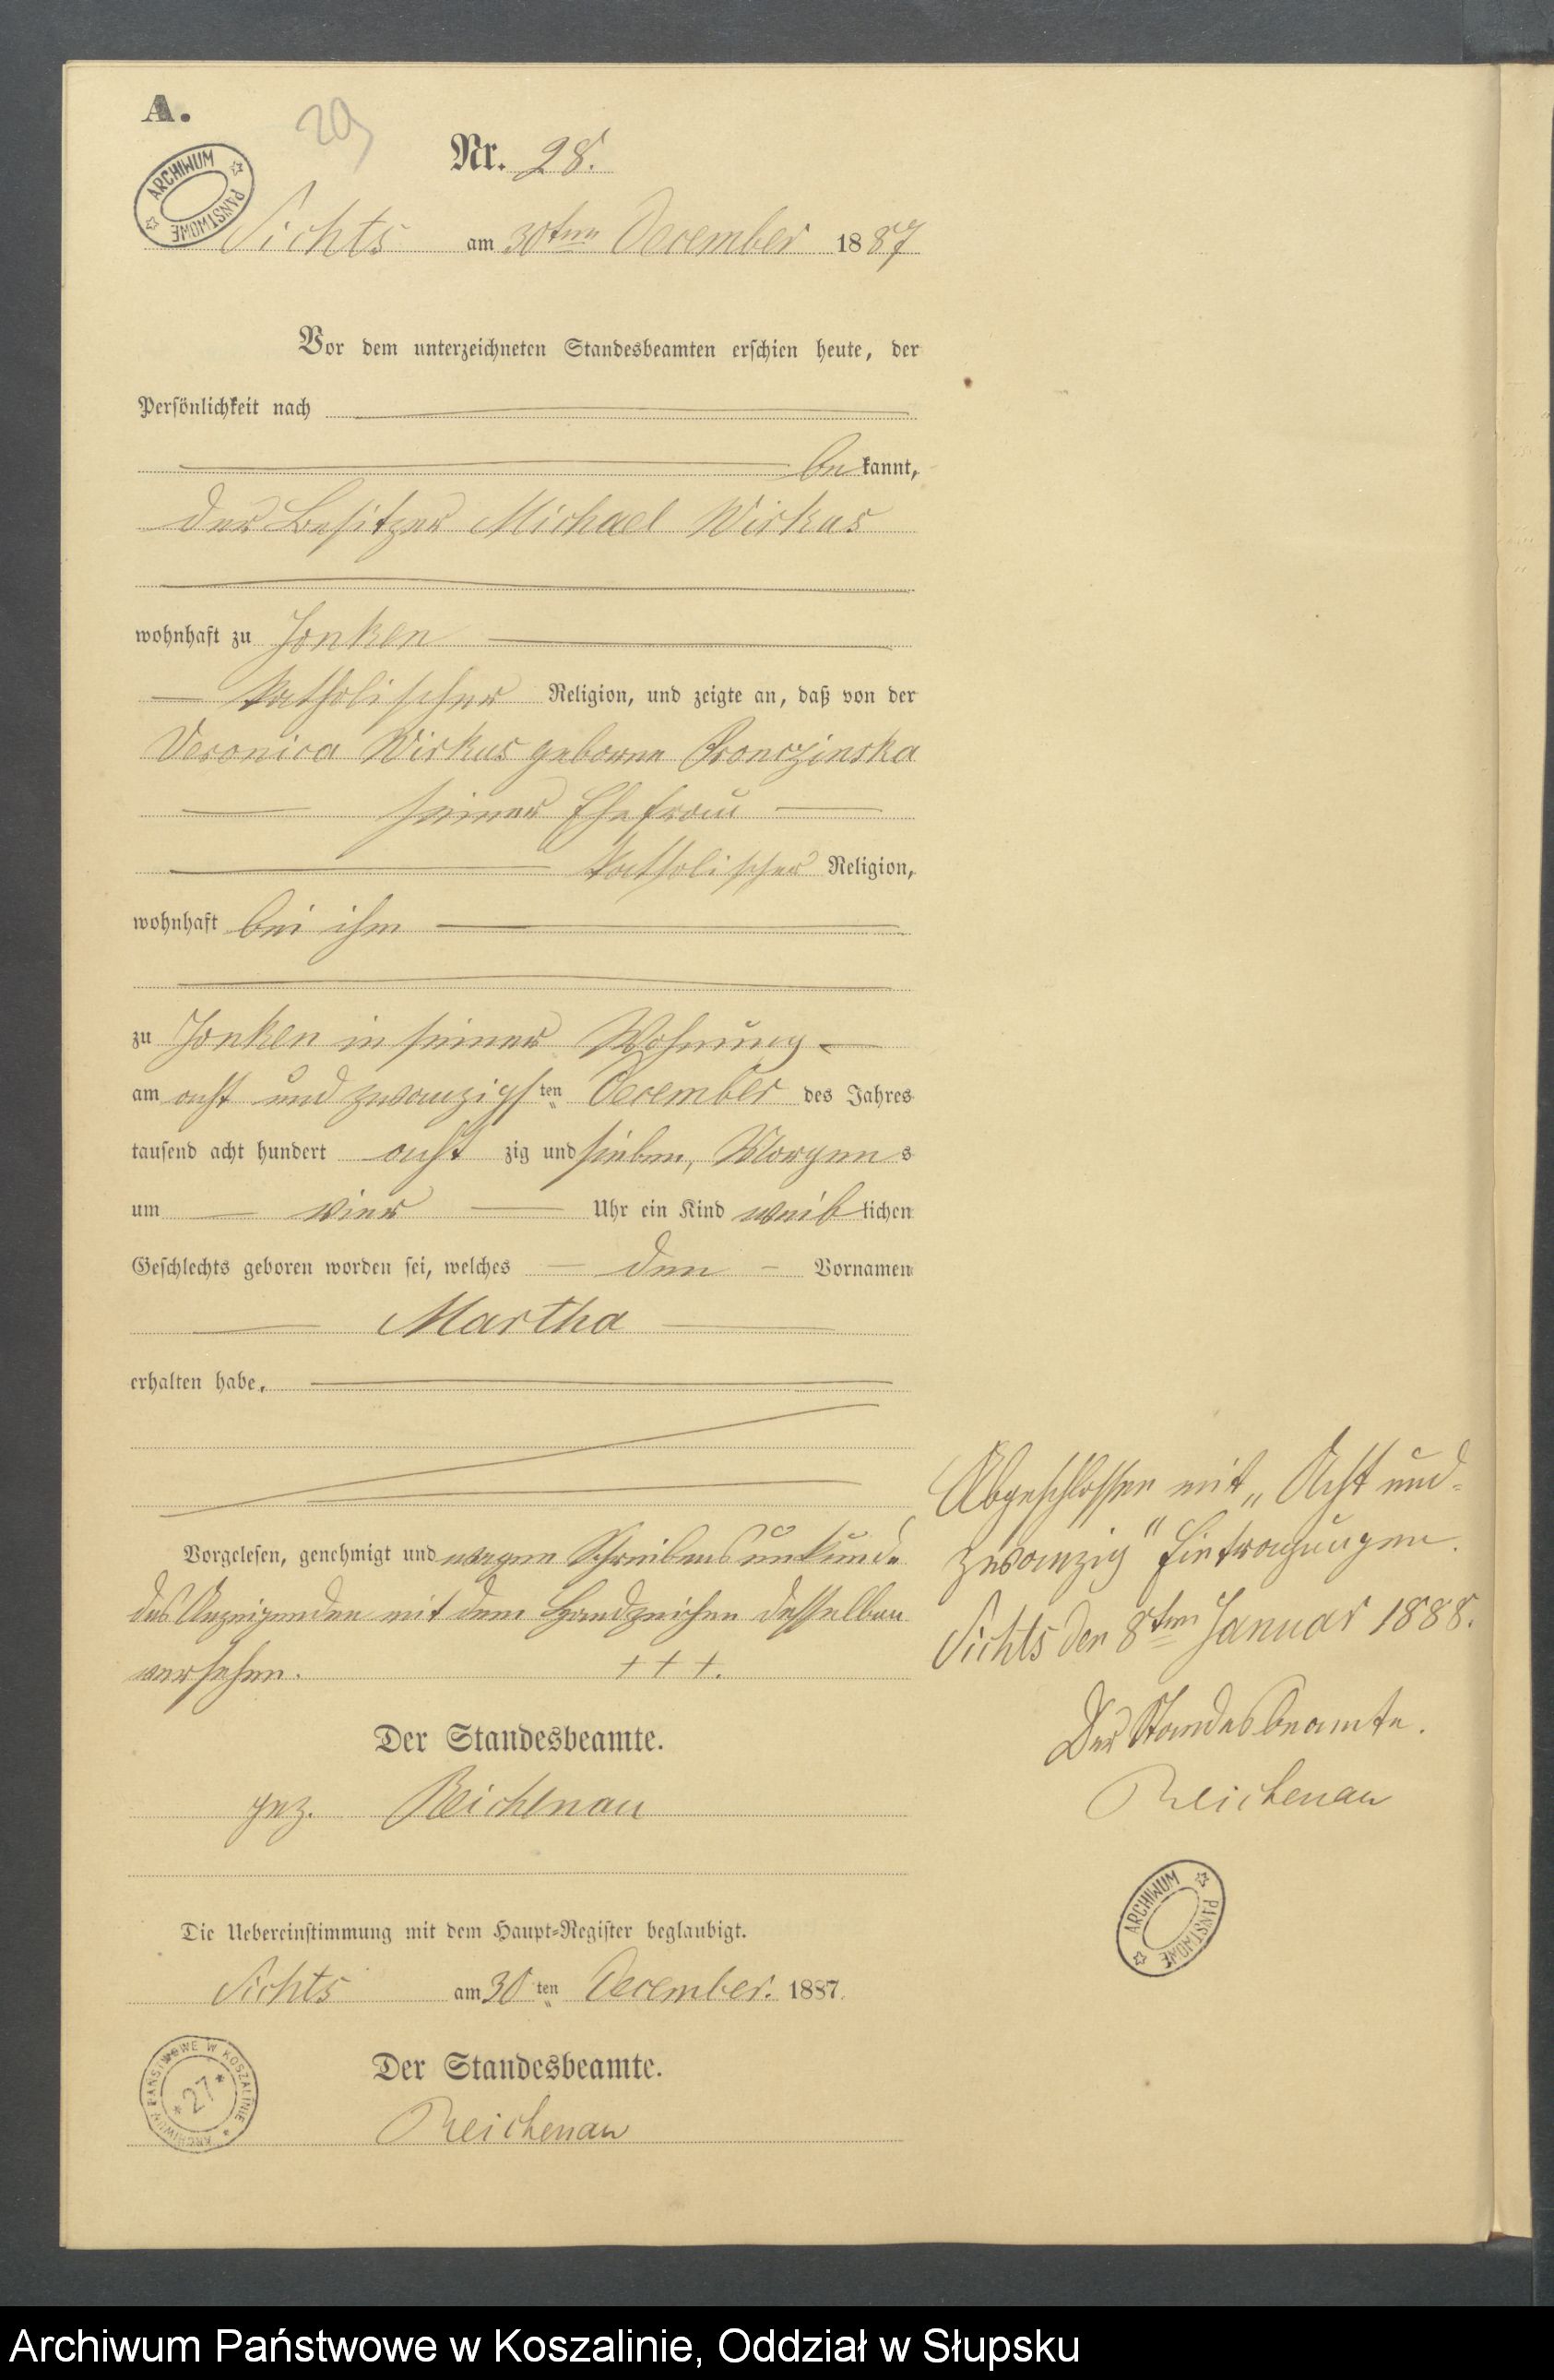 A.
29
Nr. 28.
ARCHIWUM PAŃSTWOWE
Sichts am 30ten December 1887
Vor dem unterzeichneten Standesbeamten erschien heute, der
Persönlichkeit nach
bekannt,
der Besitzer Michael Wirkus
wohnhaft zu Jonken
katholischer Religion, und zeigte an, daß von der
Veronica Wirkus geborne Pronczinska
seiner Ehefrau
katholischer Religion,
wohnhaft bei ihm
zu Jonken in seiner Wohnung
am acht und zwanzigsten December des Jahres
tausend acht hundert acht zig und sieben, Morgens
um vier Uhr ein Kind weiblichen
Geschlechts geboren worden sei, welches den Vornamen
Martha
erhalten habe.
Vorgelesen, genehmigt und wegen Schreibensunkunde
des Anzeigenden mit dem Handzeichen desselben
versehen. +++.
Der Standesbeamte.
gez. Reichenau
Die Uebereinstimmung mit dem Haupt-Register beglaubigt.
Sichts am 30ten December. 1887.
Der Standesbeamte.
Reichenau
ARCHIWUM PAŃSTWOWE W KOSZALINIE
*27*
Abgeschlossen mit „Acht und-
zwanzig" Eintragungen.
Sichts den 8ten Januar 1888.
Der Standesbeamte.
Reichenau
ARCHIWUM PAŃSTWOWE
Archiwum Państwowe w Koszalinie, Oddział w Słupsku